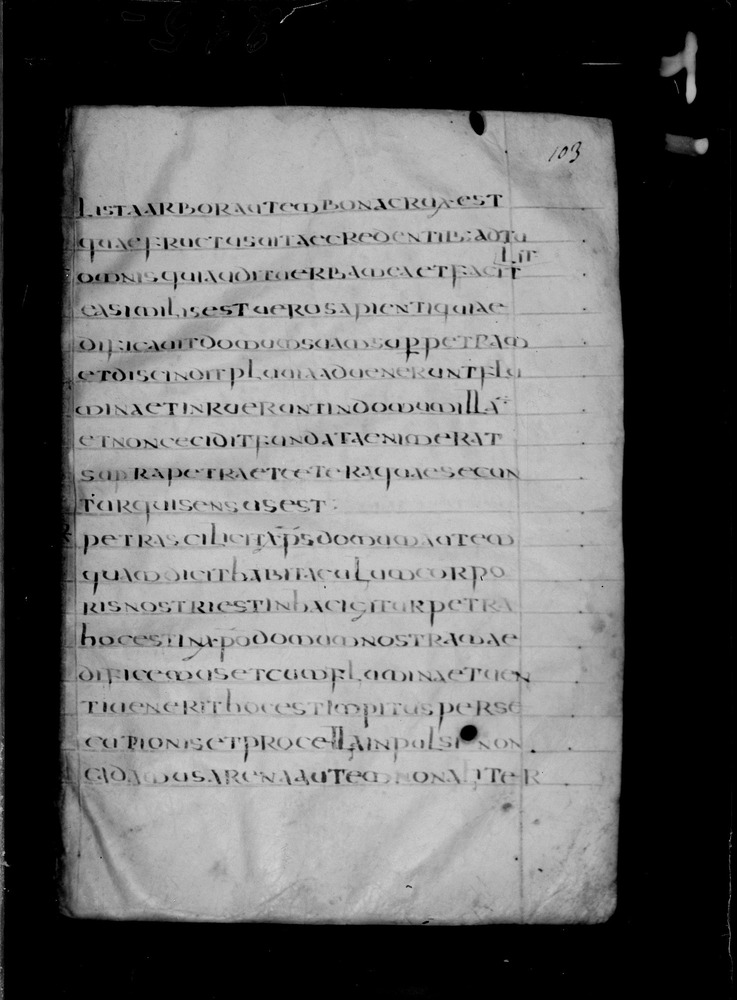 103
LISTA ARBOR AUTEM BONA CRUX EST
QUAE FRUCTUS UITAE CREDENTIB: ADTU
LIT
OMNIS QUI AUDIT UERBA MEA ET FACIT
EA SIMILIS EST UERO SAPIENTI QUI AE
DIFICAUIT DOMUM SUAM SUPPETRAM
ET DISCINDIT PLUUIA ADUENERUNT FLU
MINA ET INRUERUNT IN DOMUM ILLA
ET NON CECIDIT FUNDATA ENIM ERAT
SUPRA PETRA ET CETERA QUAE SECUN
TUR QUI SENSUS EST:
PETRA SCILICIT XPS DOMUM AUTEM
QUAM DICIT HABITACULUM CORPO
RIS NOSTRI EST IN HAC IGITUR PETRA
HOC EST IN XPO DOMUM NOSTRAM AE
DIFICEMUS ET CUM FLUMINA ET UEN
TI UENERIT HOC EST IMPITUS PERSE
CUTIONIS ET PROCELLA INPULSI NON
CADAMUS ARENA AUTEM NON ALITER